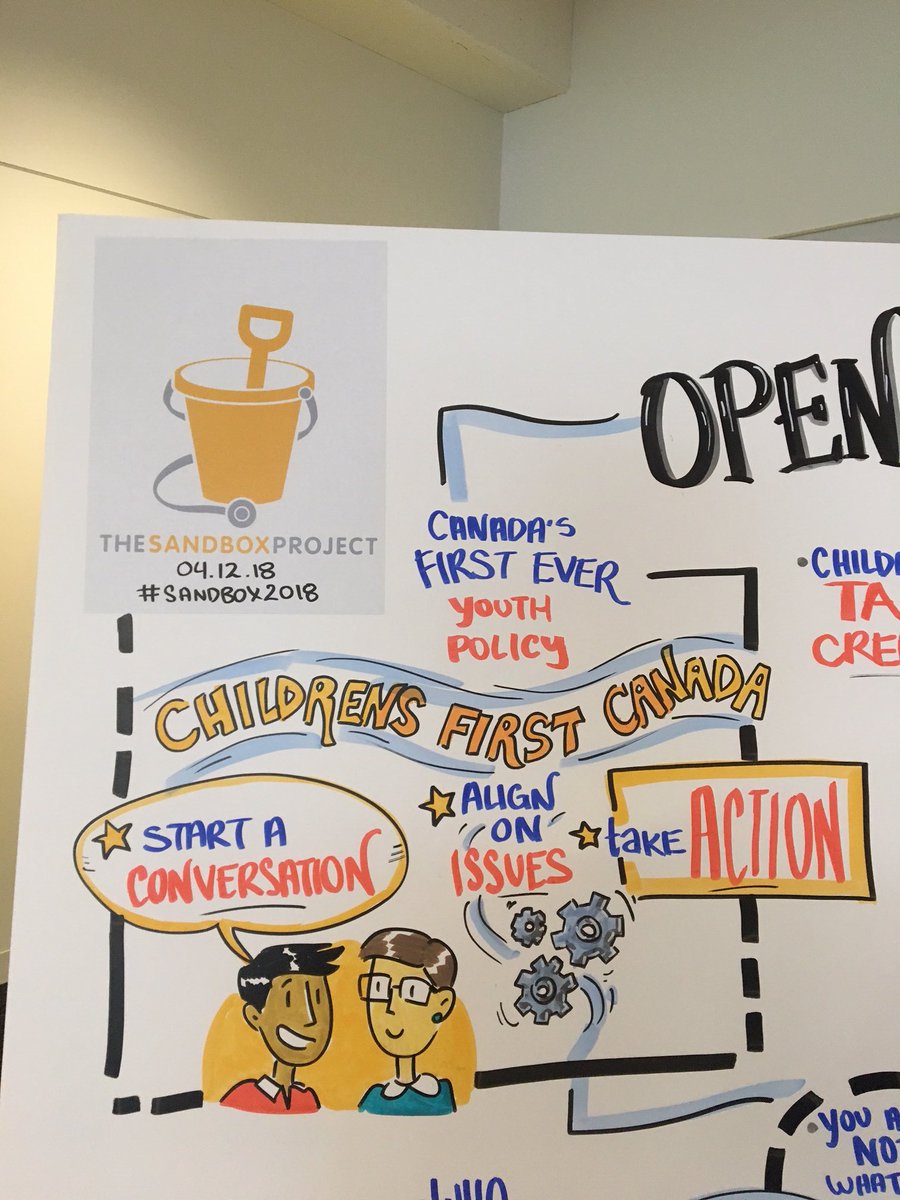 OPEN
THESANDBOXPROJECT
04.12.18
#SANDBOX2018
CANADA'S
FIRST EVER
YOUTH
POLICY
CHILDRENS FIRST CANADA
START A
CONVERSATION
ALIGN
ON
ISSUES
take ACTION
YOU
WHAT